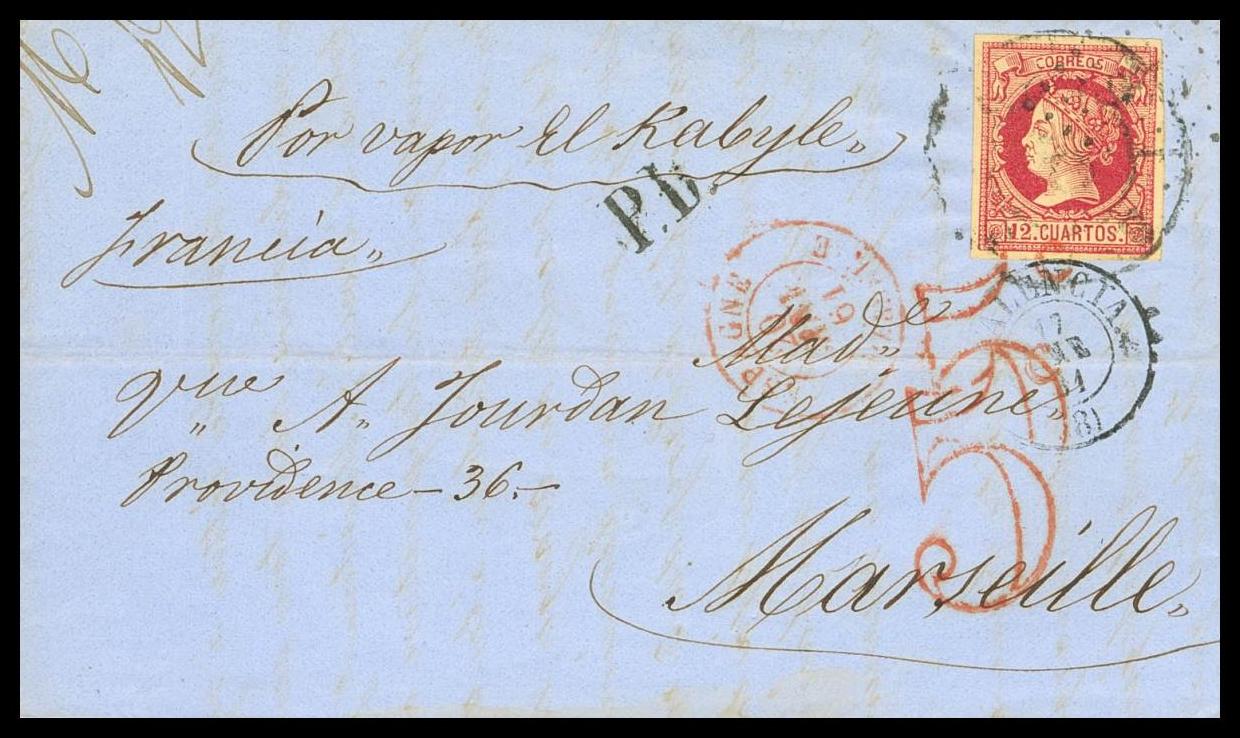 Por vapor El Kabyle,,
Francia,,
P.D.
CORREOS
12. CUARTOS.
VALENCIA.
17
61
(8)
19
61
5
Mad,,e
Vve A,, Jourdan Lejeune,,
Providence – 36.–
Marseille,,